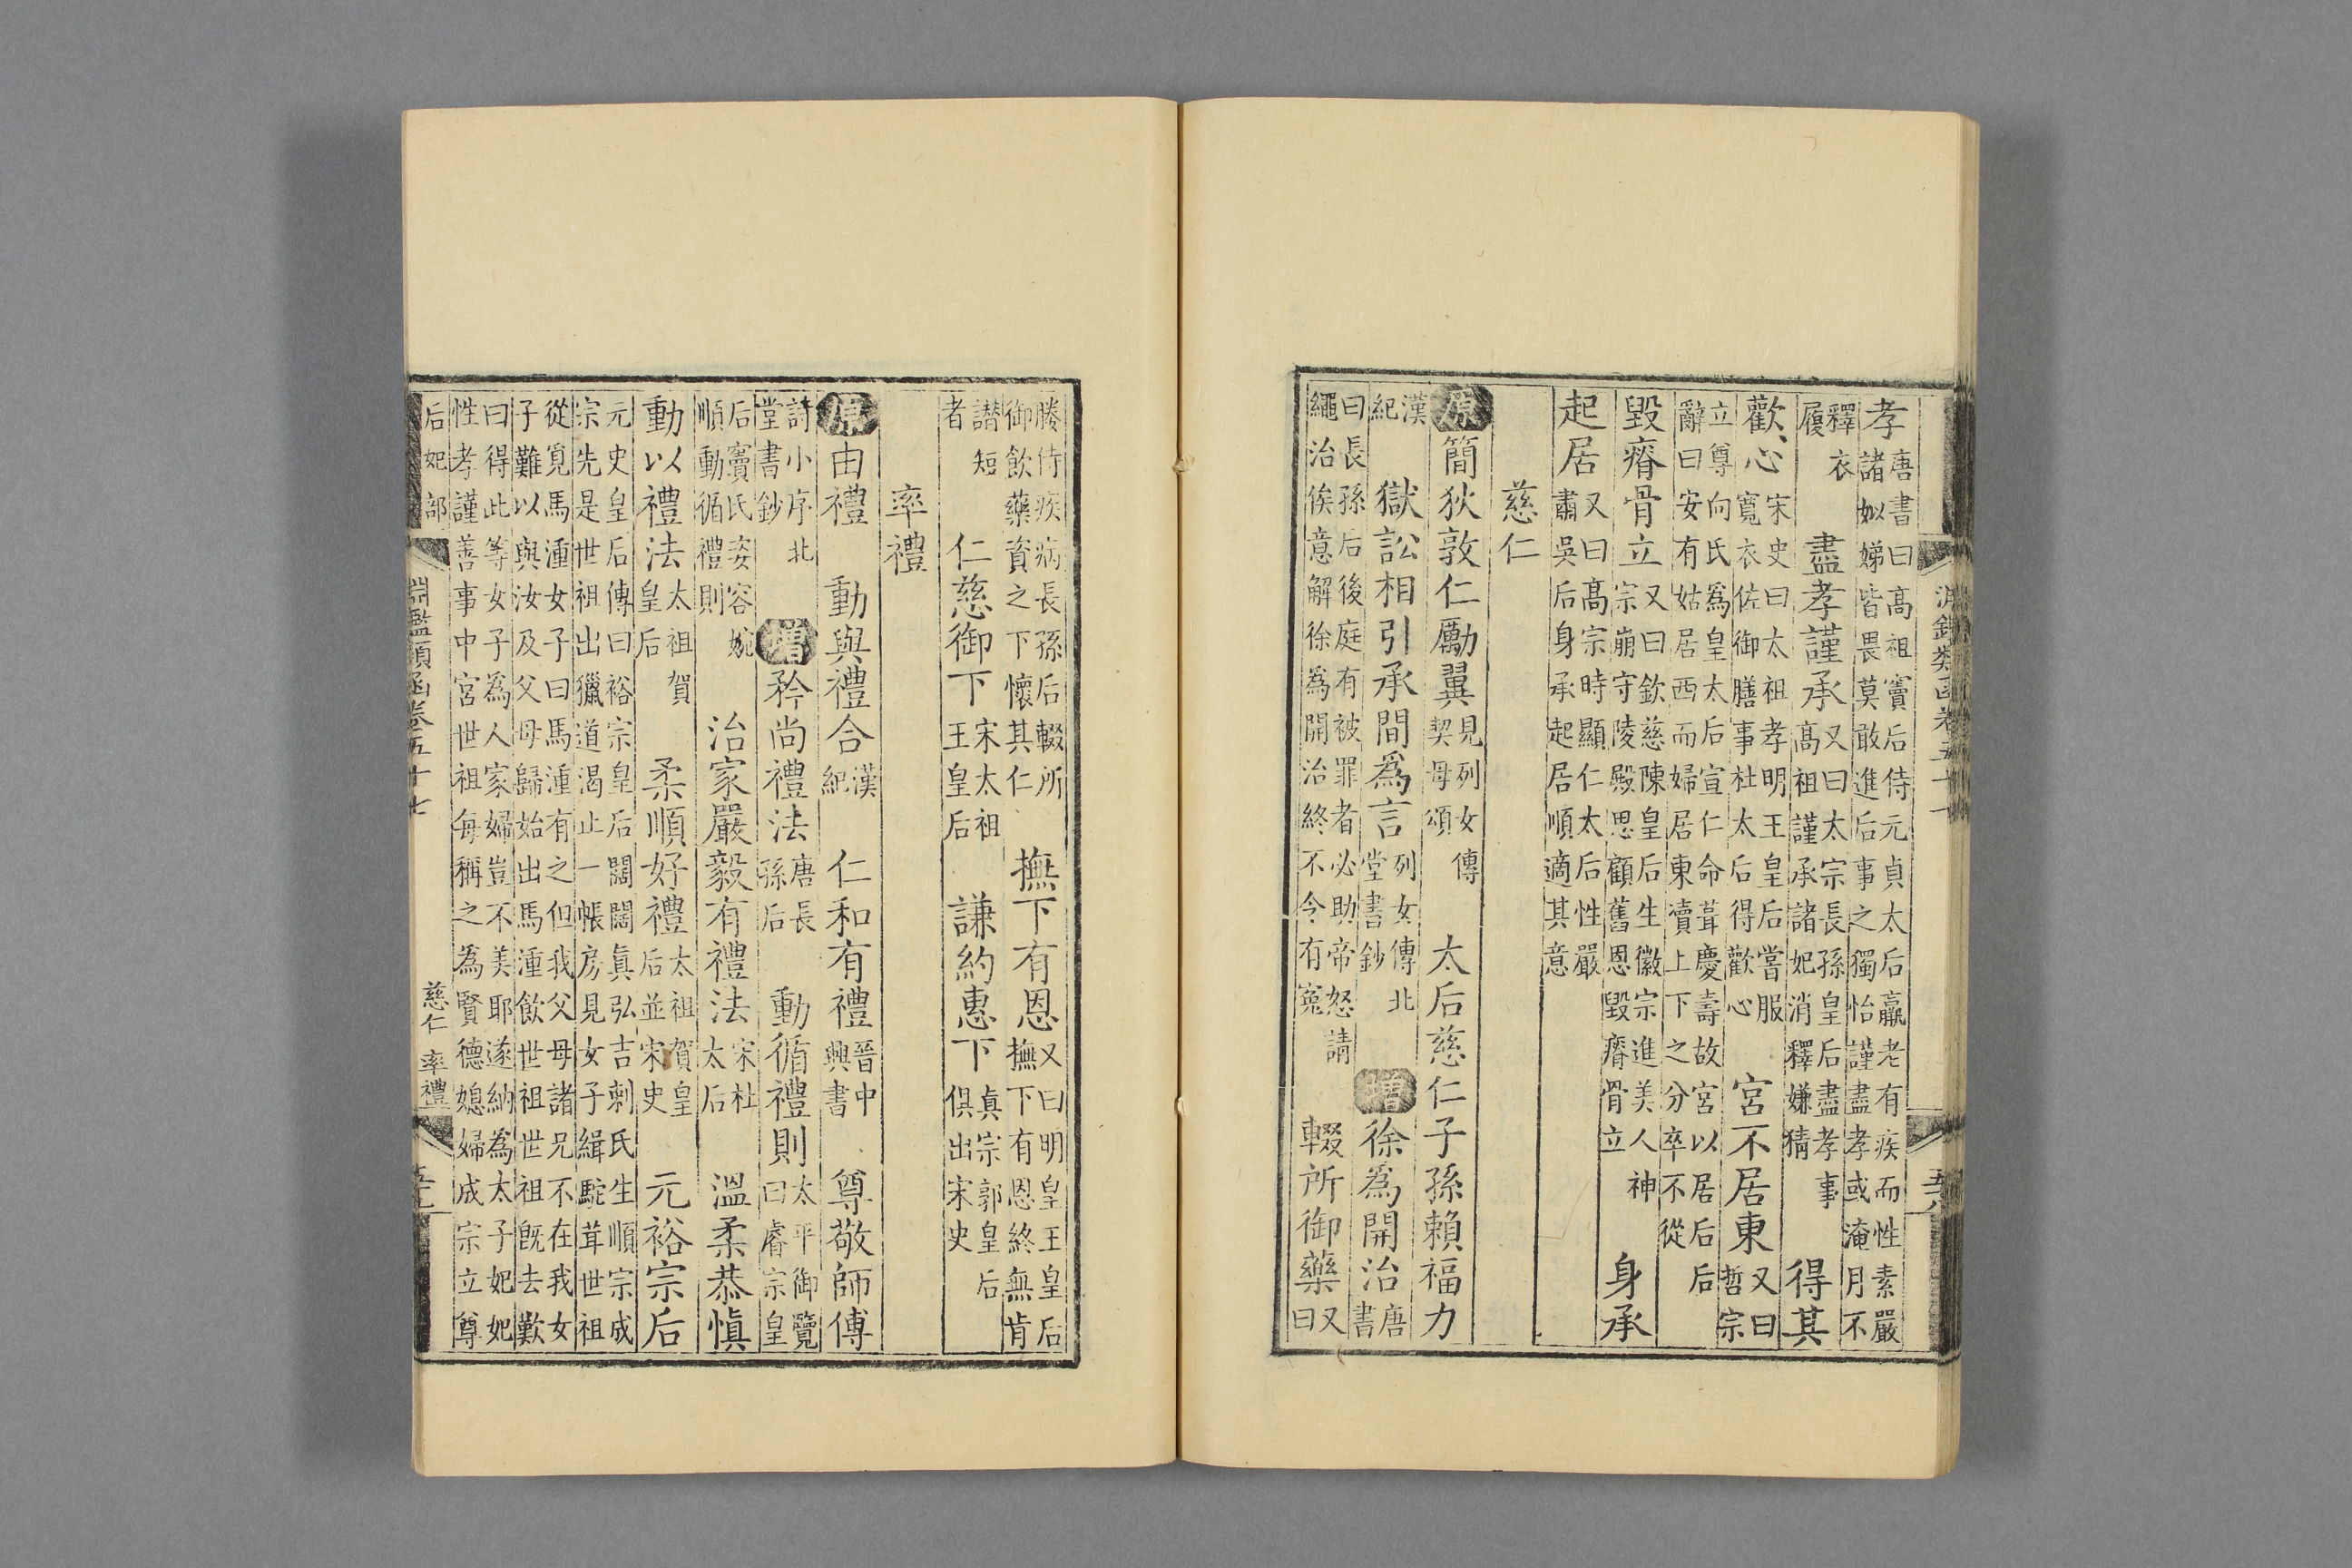 孝唐書曰高祖竇后侍元貞太后羸老有疾而性素嚴諸姒娣皆畏莫敢進后事之獨怡謹盡孝或淹月不
釋衣履　盡孝謹承又曰太宗長孫皇后盡孝事高祖謹承諸妃消釋嫌猜　得其
歡心宋史曰太祖孝明王皇后嘗服寬衣佐御膳事杜太后得歡心　宮不居東又曰哲宗
立尊向氏爲皇太后宣仁命葺慶壽故宮以居后后辭曰安有姑居西而婦居東瀆上下之分卒不從
毀瘠骨立又曰欽慈陳皇后生徽宗進美人神宗崩守陵殿思顧舊恩毀瘠骨立　身承
起居又曰高宗時顯仁太后性嚴肅吳后身承起居順適其意
慈仁
原簡狄敦仁勵翼見列女傳契母頌　太后慈仁子孫賴福力
漢紀　獄訟相引承間爲言列女傳北堂書鈔　增徐爲開治唐書
曰長孫后後庭有被罪者必助帝怒請繩治俟意解徐爲開治終不令有冤　輟所御藥又曰
媵侍疾病長孫后輟所御飲藥資之下懷其仁　撫下有恩又曰明皇王皇后撫下有恩終無肯
譖短者　仁慈御下宋太祖王皇后　謙約惠下真宗郭皇后俱出宋史
率禮
原由禮　動與禮合漢紀　仁和有禮晉中興書　尊敬師傅
詩小序北堂書鈔　增矜尚禮法唐長孫后　動循禮則太平御覽曰睿宗皇
后竇氏姿容婉順動循禮則　治家嚴毅有禮法宋杜太后　溫柔恭慎
動以禮法太祖賀皇后　柔順好禮太祖賀皇后並宋史　元裕宗后
元史皇后傳曰裕宗皇后闊闊真弘吉剌氏生順宗成宗先是世祖出獵道渴止一帳房見女子緝駝茸世祖
從覓馬湩女子曰馬湩有之但我父母諸兄不在我女子難以與汝及父母歸始出馬湩飲世祖世祖既去歎
曰得此等女子爲人家婦豈不美耶遂納爲太子妃妃性孝謹善事中宮世祖每稱之爲賢德媳婦成宗立尊
后妃部　淵鑑類函卷五十七　慈仁 率禮